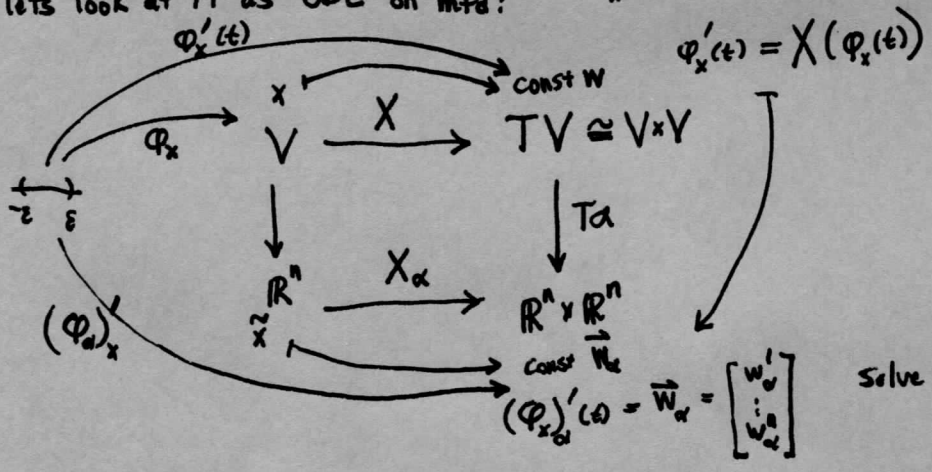 lets look at it as ODE on mfd:
φₓ'(t)
φₓ'(t) = X(φₓ(t))
x ↦ const w
φₓ
V X TV ≅ V×V
-ε ε
Tα
ℝⁿ X_α ℝⁿ × ℝⁿ
x̃ ↦ const w⃗_α
(φ_α)ₓ'
(φₓ)_α'(t) = w⃗_α = [w_α¹ ⋮ w_αⁿ] Solve